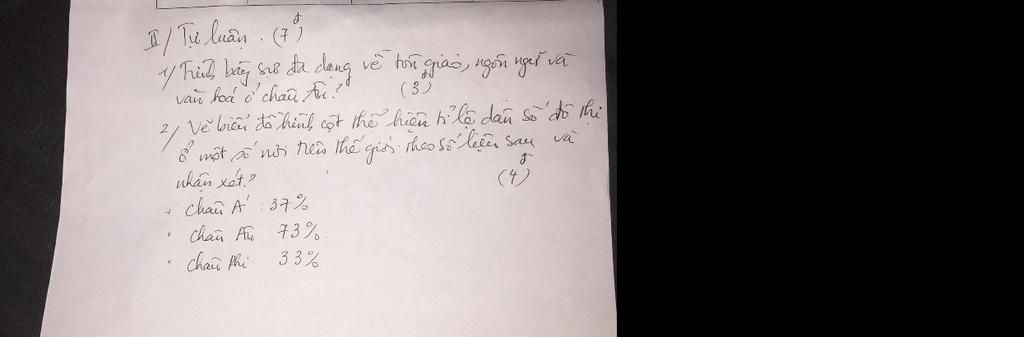 II/ Tự luận. (7đ)
1/ Trình bày sự đa dạng về tôn giáo, ngôn ngữ và
văn hoá ở châu Âu? (3đ)
2/ Vẽ biểu đồ hình cột thể hiện tỉ lệ dân số đô thị
ở một số nơi trên thế giới theo số liệu sau và
nhận xét? (4đ)
+ Châu Á : 37%
+ Châu Âu 73%.
+ Châu Phi 33%